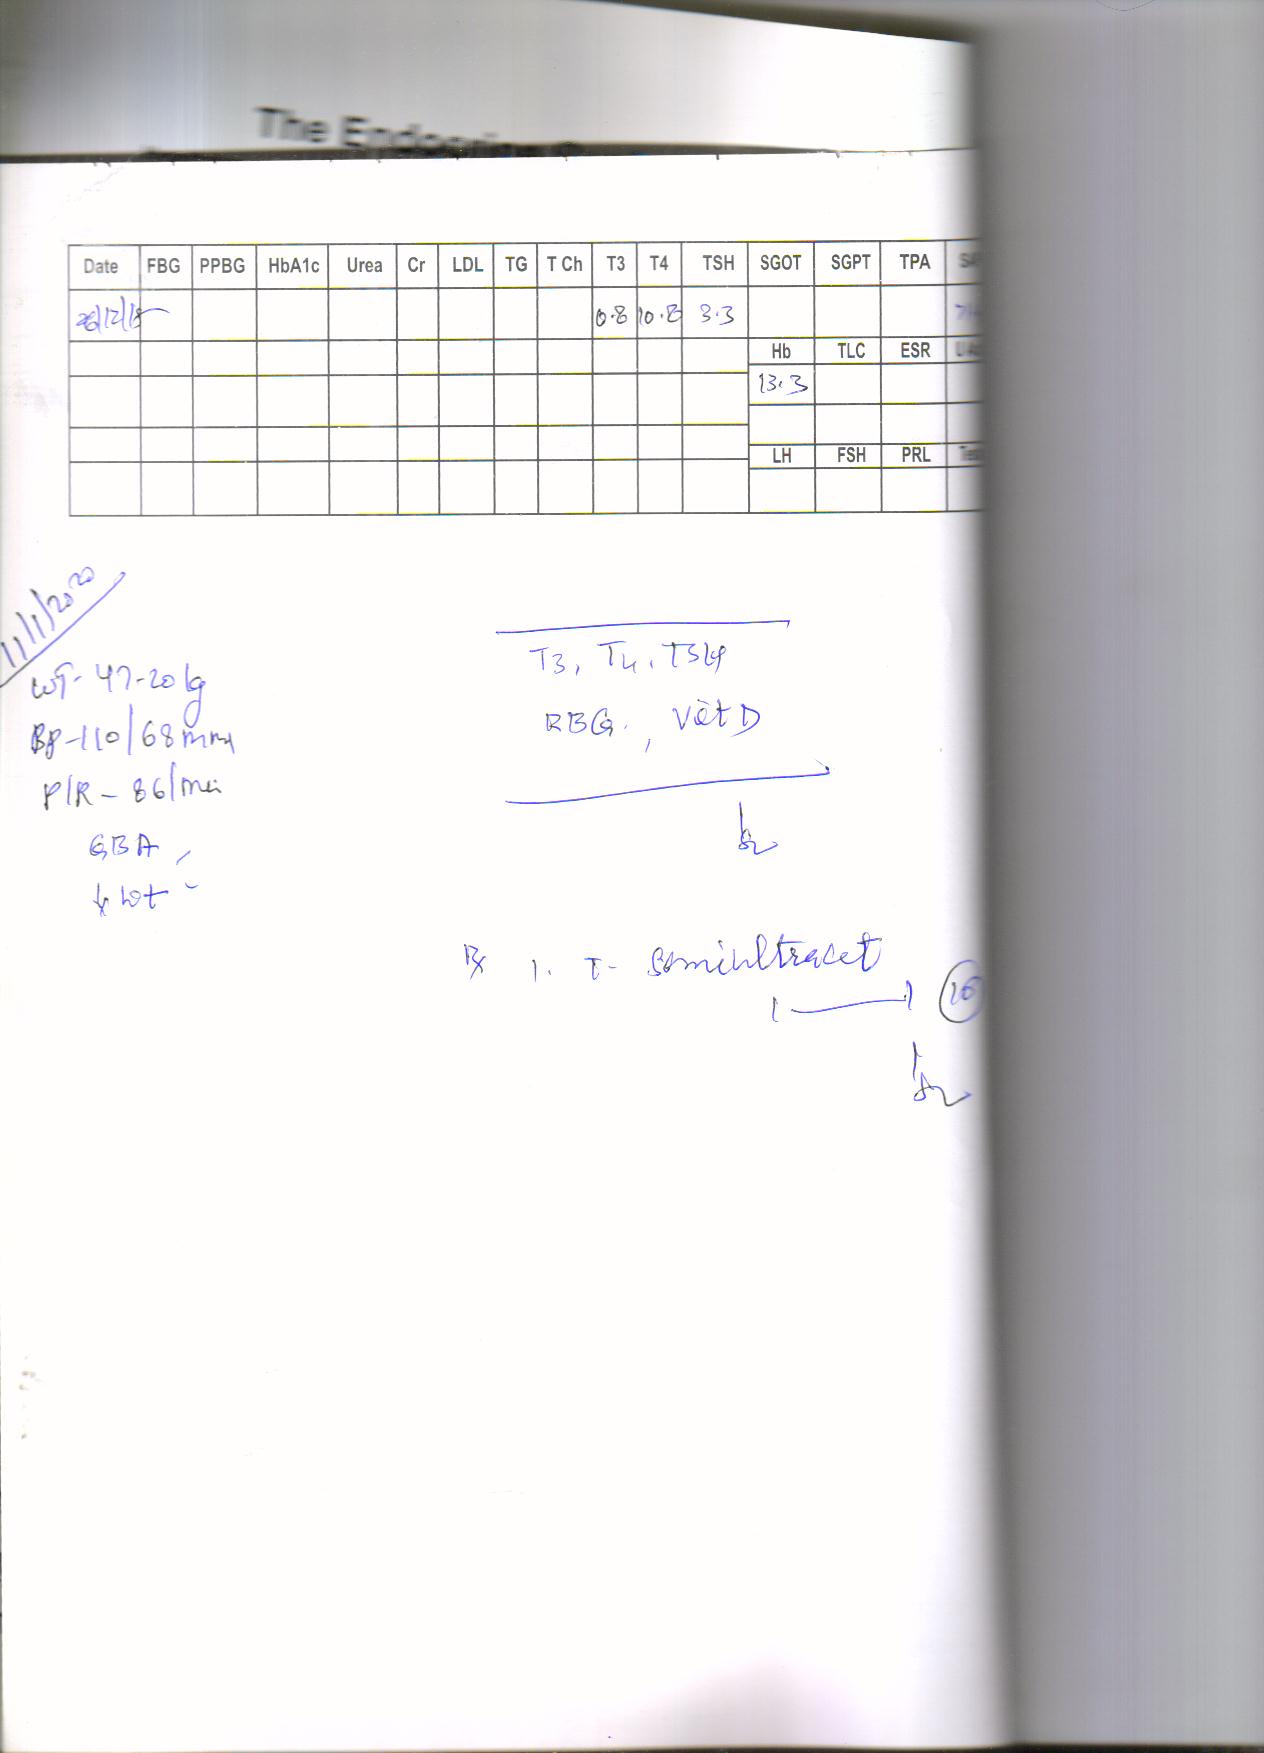 The Endocrine
Date FBG PPBG HbA1c Urea Cr LDL TG T Ch T3 T4 TSH SGOT SGPT TPA
26/12/18 0.8 10.8 3.3
Hb TLC ESR
13.3
LH FSH PRL
11/1/2020
WT- 47-20 kg
BP-110/68 mm
P/R - 86/min
GBA
↓ wt
T3, T4, TSH
RBG, Vit D
Rx 1. T- Semiultracet
1 — 1 (10)